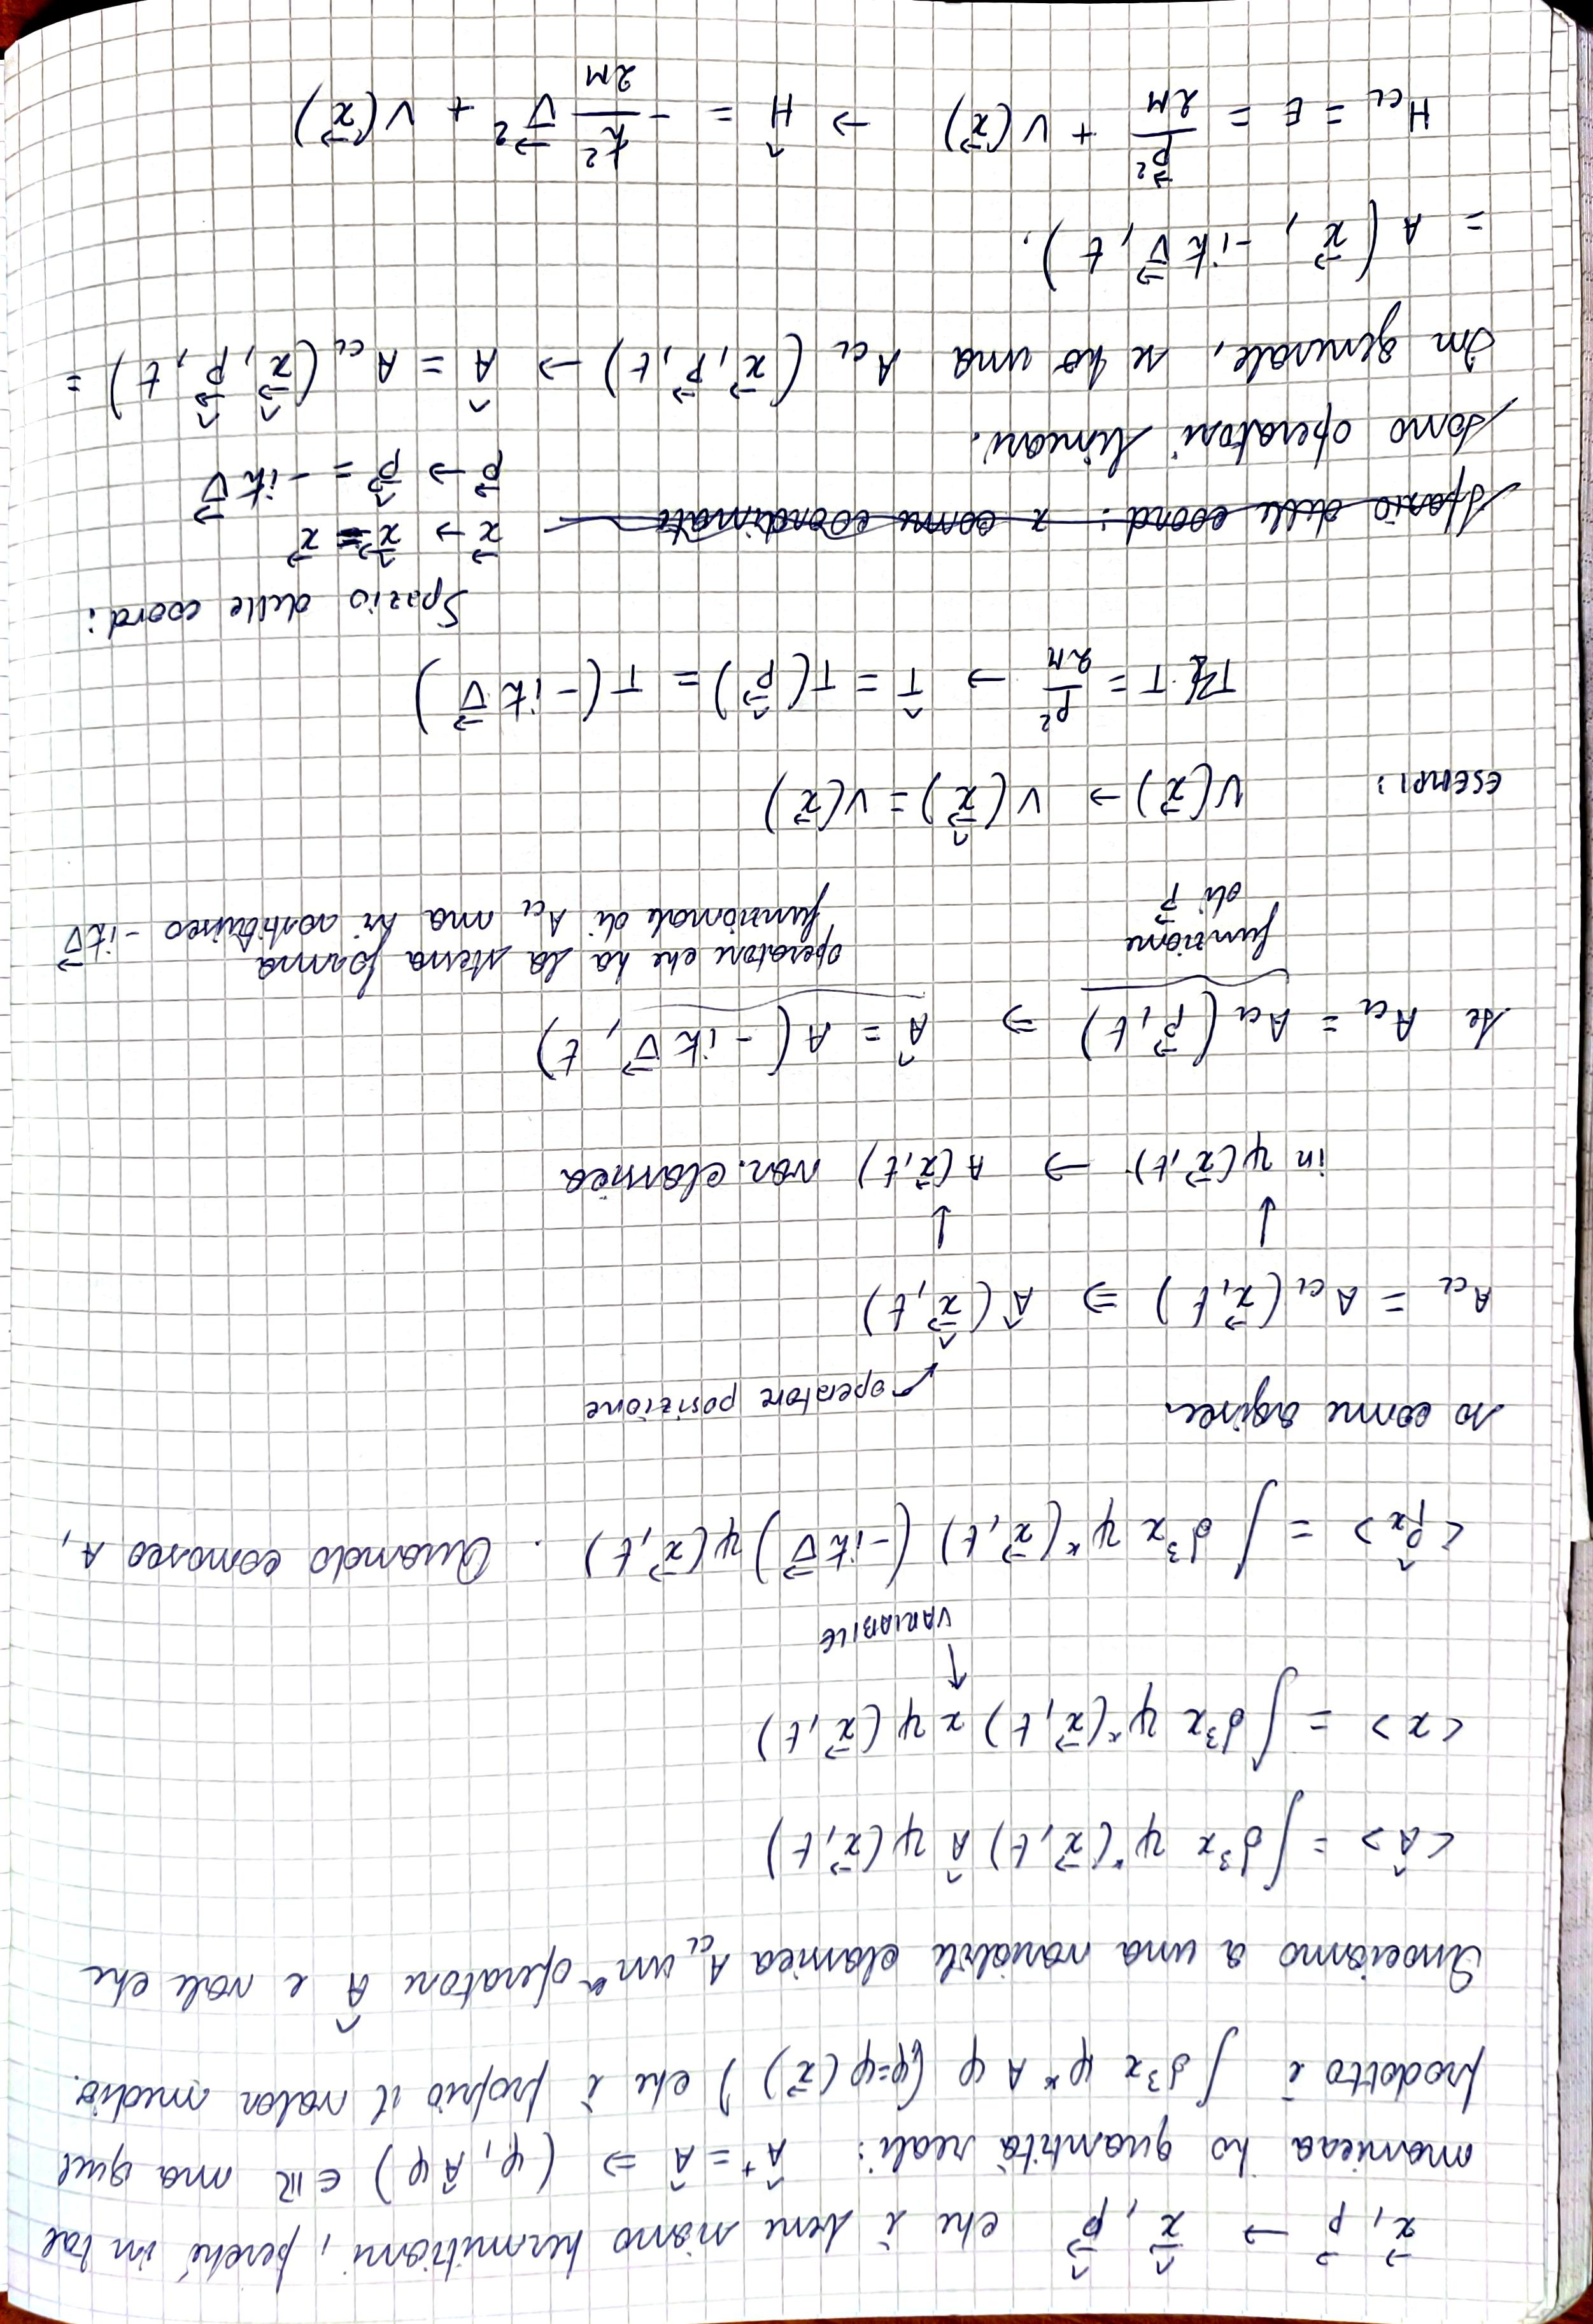 x⃗, p⃗ → x̂⃗, p̂⃗ che è bene siano hermitiani, perché in tal
maniera ho quantità reali: Â⁺ = Â ⇒ (φ, Âφ) ∈ ℝ ma quel
prodotto è ∫ d³x φ* A φ (φ=φ(x⃗)) che è proprio il valor medio.
Associamo a una variabile classica A_cl un operatore Â e vale che
<Â> = ∫ d³x ψ*(x⃗,t) Â ψ(x⃗,t)
<x> = ∫ d³x ψ*(x⃗,t) x ψ(x⃗,t)
↑
VARIABILE
<p̂x> = ∫ d³x ψ*(x⃗,t) (-iħ∇⃗) ψ(x⃗,t). Quando conosco A,
so come agisce.
↙ operatore posizione
A_cl = A_cl(x⃗,t) ⇒ Â(x̂⃗,t)
↓ ↓
in ψ(x⃗,t) → A(x⃗,t) var. classica
Se A_cl = A_cl(p⃗,t) ⇒ Â = A(-iħ∇⃗, t)
funzione
di p⃗
operatore che ha la stessa forma
funzionale di A_cl ma vi sostituisco -iħ∇⃗
ESEMPI: V(x⃗) → V(x̂⃗) = V(x⃗)
T = p²/2M → T̂ = T(p̂⃗) = T(-iħ∇⃗)
Spazio delle coord:
x⃗ → x̂⃗ = x⃗
p⃗ → p̂⃗ = -iħ∇⃗
Spazio delle coord: x come coordinate
Sono operatori lineari.
In generale, se ho una A_cl(x⃗,p⃗,t) → Â = A_cl(x̂⃗,p̂⃗,t) =
= A(x⃗, -iħ∇⃗, t).
H_cl = E = p⃗²/2M + V(x⃗) → Ĥ = -ħ²/2M ∇⃗² + V(x⃗)